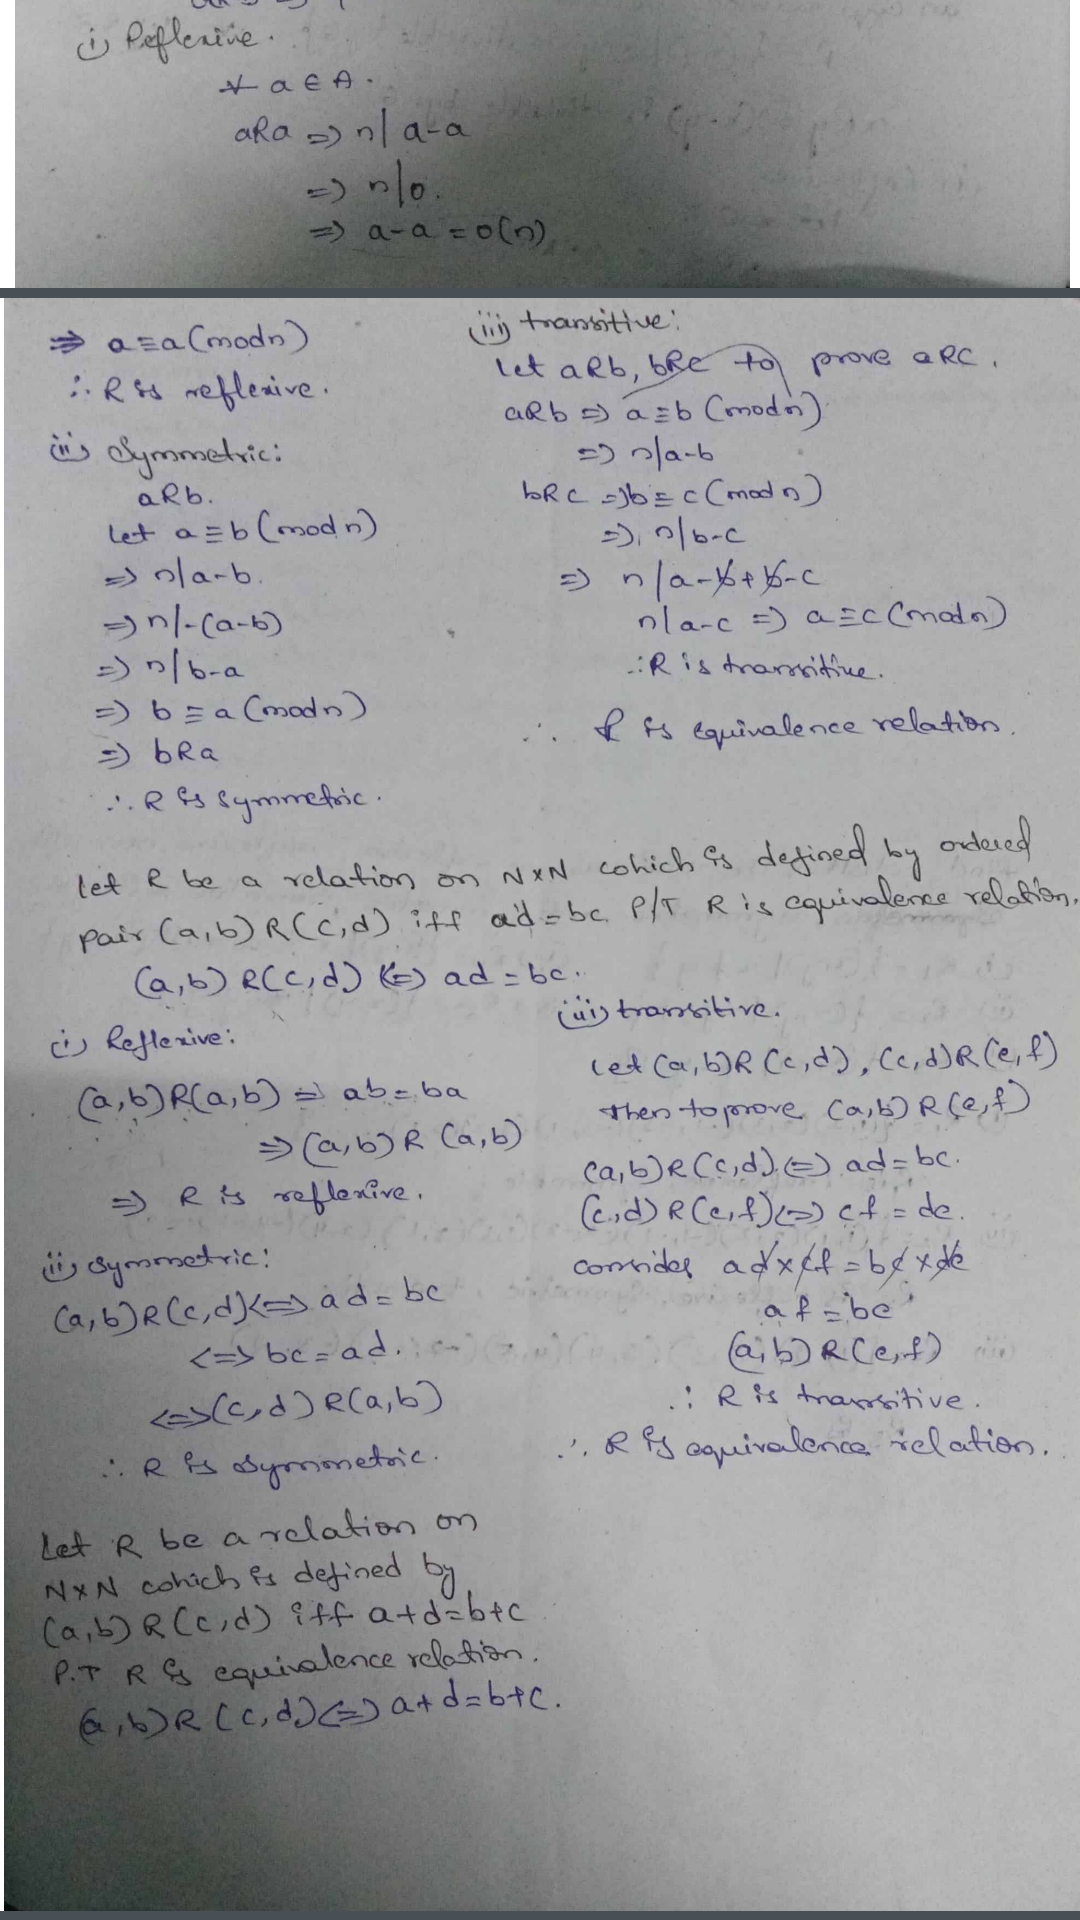 (i) Reflexive.
∀ a ∈ A.
aRa ⇒ n| a-a
⇒ n|0.
⇒ a-a = 0(n)
⇒ a≡a(mod n)
∴ R is reflexive.
(ii) Symmetric:
aRb.
Let a≡b (mod n)
⇒ n|a-b.
⇒ n|-(a-b)
⇒ n|b-a
⇒ b≡a (mod n)
⇒ bRa
∴ R is symmetric.
(iii) transitive:
Let aRb, bRc to prove aRC.
aRb ⇒ a≡b (mod n)
⇒ n|a-b
bRC ⇒ b≡c(mod n)
⇒, n|b-c
⇒ n|a-b+b-c
n|a-c ⇒ a≡c(mod n)
∴ R is transitive.
∴ R is equivalence relation.
Let R be a relation on N×N which is defined by ordered
pair (a,b) R(c,d) iff ad=bc P/T R is equivalence relation.
(a,b) R(c,d) ⇔ ad=bc.
(i) Reflexive:
(a,b)R(a,b) ⇒ ab=ba
⇒ (a,b) R (a,b)
⇒ R is reflexive.
(ii) symmetric:
(a,b)R(c,d) ⇔ ad=bc
⇔ bc=ad.
⇔ (c,d) R(a,b)
∴ R is symmetric.
(iii) transitive.
Let (a,b)R(c,d), (c,d)R(e,f)
then to prove (a,b) R(e,f)
(a,b)R(c,d) ⇔ ad=bc.
(c,d) R(e,f) ⇔ cf=de.
consider ad×cf=bc×de
af=be
(a,b) R(e,f)
∴ R is transitive.
∴ R is equivalence relation.
Let R be a relation on
N×N which is defined by
(a,b) R(c,d) iff a+d=b+c
P.T R is equivalence relation.
(a,b)R(c,d) ⇔ a+d=b+c.